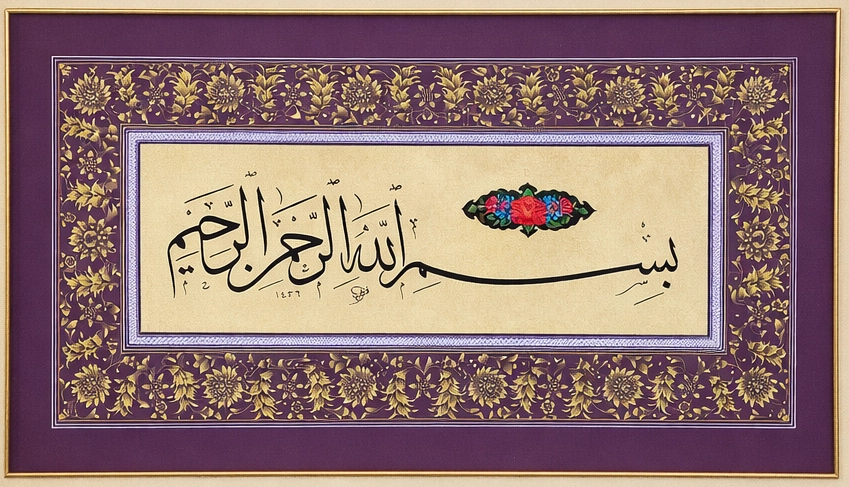 بِسْمِ اللهِ الرَّحْمٰنِ الرَّحِيْمِ
١٤٣٦